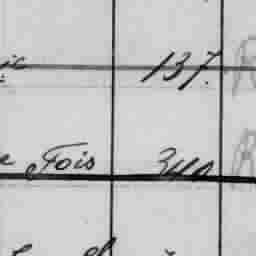 ic 137.
e Fois 340